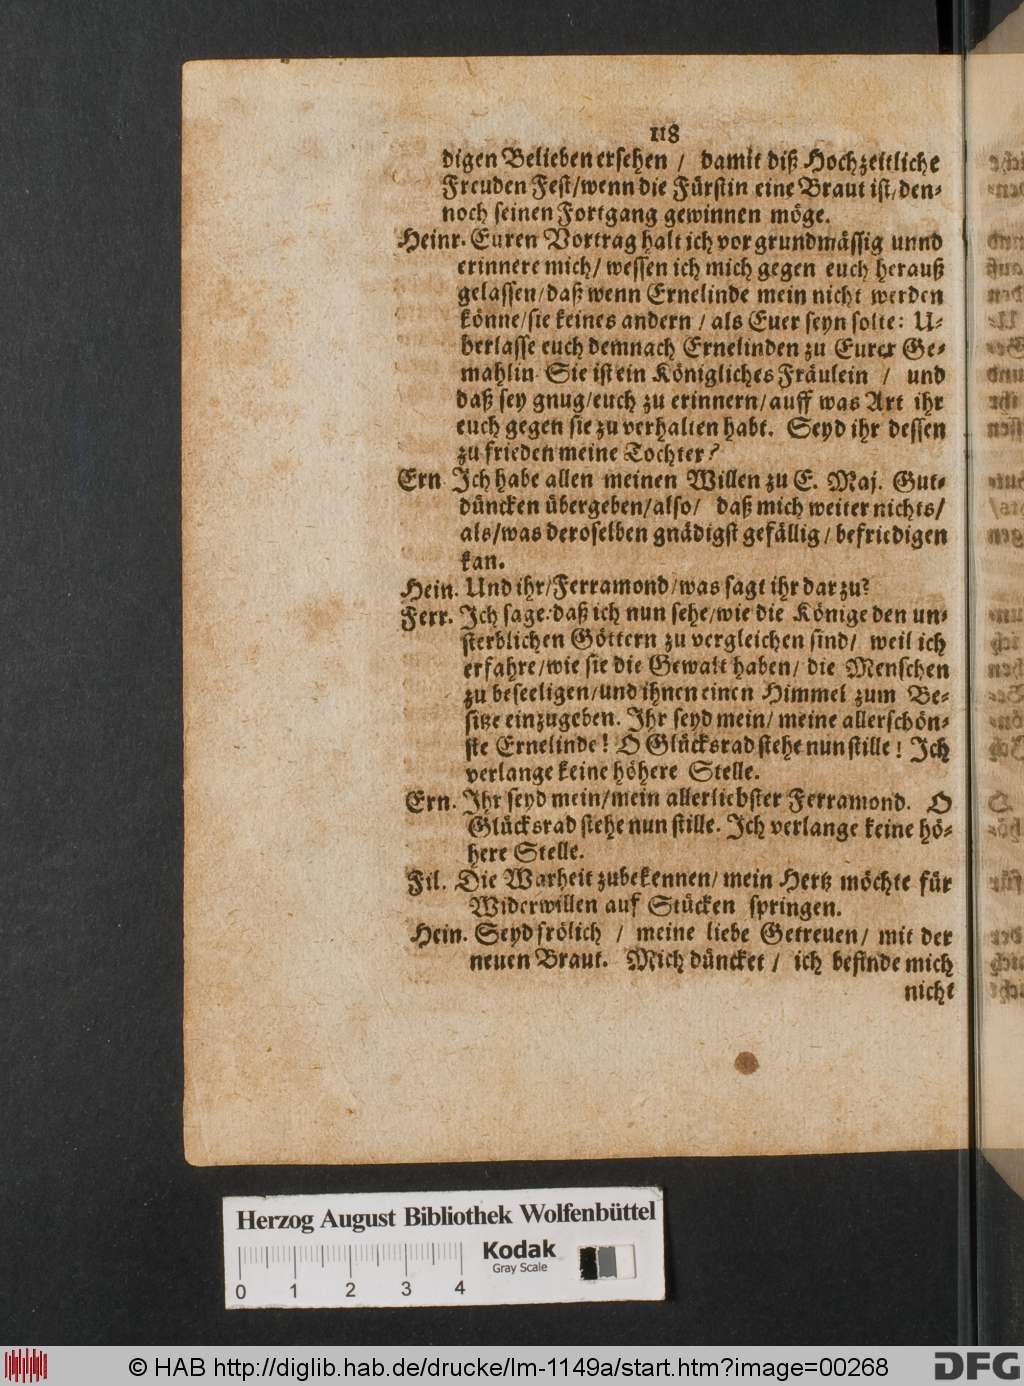 118
digen Belieben ersehen / damit diß Hochzeitliche
Freuden Fest/wenn die Fürstin eine Braut ist/den-
noch seinen Fortgang gewinnen möge.
Heinr. Euren Vortrag halt ich vor grundmässig unnd
erinnere mich/ wessen ich mich gegen euch herauß
gelassen/daß wenn Ernelinde mein nicht werden
könne/sie keines andern / als Euer seyn solte: U-
berlasse euch demnach Ernelinden zu Eurer Ge-
mahlin. Sie ist ein Königliches Fräulein / und
daß sey gnug/euch zu erinnern/auff was Art ihr
euch gegen sie zu verhalten habt. Seyd ihr dessen
zu frieden meine Tochter?
Ern. Ich habe allen meinen Willen zu E. Maj. Gut-
düncken übergeben/also/ daß mich weiter nichts/
als/was deroselben gnädigst gefällig/ befriedigen
kan.
Hein. Und ihr/Ferramond/was sagt ihr dar zu?
Ferr. Ich sage: daß ich nun sehe/wie die Könige den un-
sterblichen Göttern zu vergleichen sind/ weil ich
erfahre/wie sie die Gewalt haben/ die Menschen
zu beseeligen/und ihnen einen Himmel zum Be-
sitze einzugeben. Ihr seyd mein/ meine allerschön-
ste Ernelinde! O Glücksrad stehe nun stille! Ich
verlange keine höhere Stelle.
Ern. Ihr seyd mein/mein allerliebster Ferramond. O
Glücksrad stehe nun stille. Ich verlange keine hö-
here Stelle.
Fil. Die Warheit zubekennen/ mein Hertz möchte für
Widerwillen auf Stücken springen.
Hein. Seyd frölich / meine liebe Getreuen/ mit der
neuen Braut. Mich düncket / ich befinde mich
nicht
Herzog August Bibliothek Wolfenbüttel
Kodak
Gray Scale
0 1 2 3 4
© HAB http://diglib.hab.de/drucke/lm-1149a/start.htm?image=00268
DFG